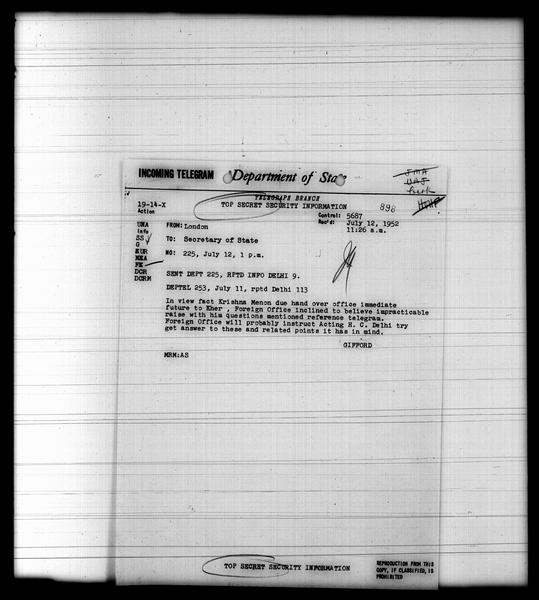 INCOMING TELEGRAM Department of State
TELEGRAPH BRANCH
19-14-X
TOP SECRET SECURITY INFORMATION
898
Action
Control: 5687
Rec'd: July 12, 1952
11:26 a.m.
UNA
Info
SS
G
EUR
NEA
FE
DCR
DCRM
FROM: London
TO: Secretary of State
NO: 225, July 12, 1 p.m.
SENT DEPT 225, RPTD INFO DELHI 9.
DEPTEL 253, July 11, rptd Delhi 113
In view fact Krishna Menon due hand over office immediate
future to Kher , Foreign Office inclined to believe impracticable
raise with him questions mentioned reference telegram.
Foreign Office will probably instruct Acting H. C. Delhi try
get answer to these and related points it has in mind.
GIFFORD
MRM:AS
TOP SECRET SECURITY INFORMATION
REPRODUCTION FROM THIS
COPY, IF CLASSIFIED, IS
PROHIBITED